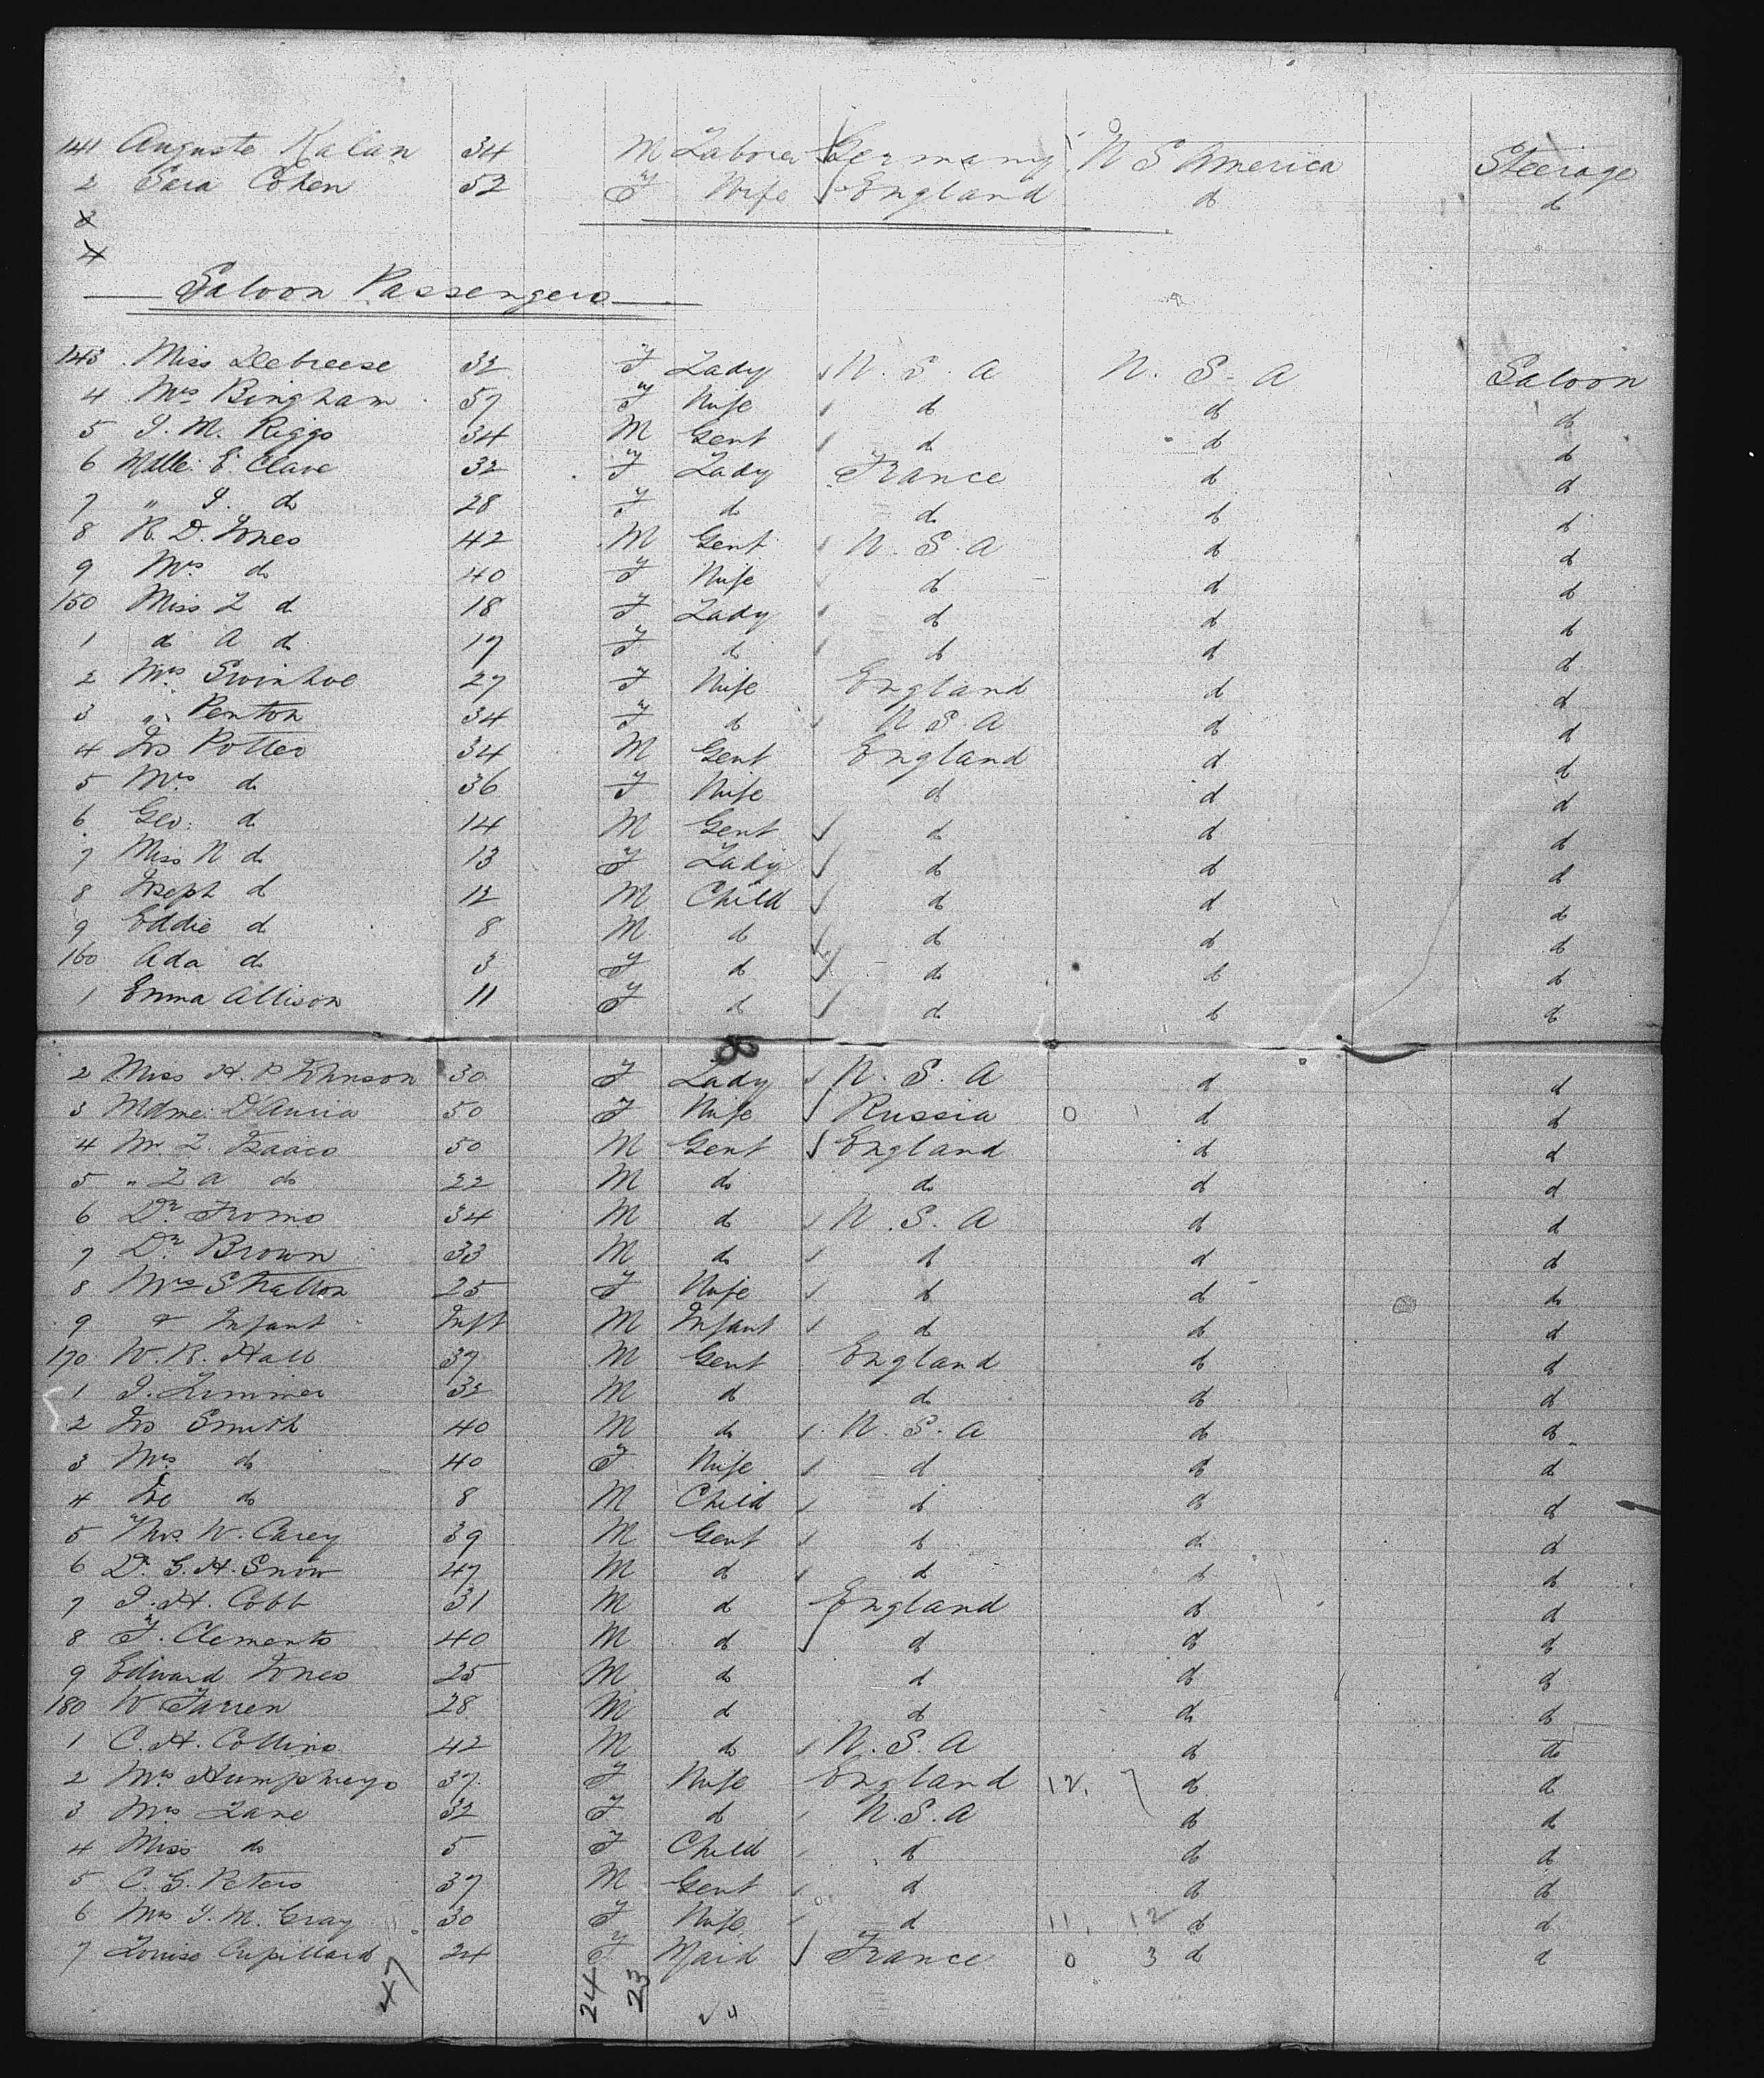 141 Auguste Kalan 34 M Laborer Germany U S America Steerage
2 Sara Cohen 52 F Wife England do do
3
4
Saloon Passengers
143 Miss Debreese 32 F Lady U. S. A U. S. A Saloon
4 Mrs Bingham 57 F Wife do do do
5 J. M. Riggs 34 M Gent do do do
6 Mdlle. E. Clave 32 F Lady France do do
7 " J. do 28 F do do do do
8 R. D. Jones 42 M Gent U. S. A do do
9 Mrs do 40 F Wife do do do
150 Miss L do 18 F Lady do do do
1 do A do 17 F do do do do
2 Mrs Swinhoe 27 F Wife England do do
3 " Penton 34 F do U S A do do
4 Jno Potter 34 M Gent England do do
5 Mrs do 36 F Wife do do do
6 Geo: do 14 M Gent do do do
7 Miss N do 13 F Lady do do do
8 Joseph do 12 M Child do do do
9 Eddie do 8 M do do do do
160 Ada do 3 F do do do do
1 Emma Allison 11 F do do do do
2 Miss H. P Johnson 30 F Lady U. S. A do do
3 Mdme: D'Auria 50 F Wife Russia 0 1 do do
4 Mr. L. Isaacs 50 M Gent England do do
5 " L A do 22 M do do do do
6 Dr. Froms 34 M do U. S. A do do
7 Dr. Brown 33 M do do do do
8 Mrs Shatton 25 F Wife do do do
9 & Infant Inft M Infant do do do
170 W. R. Hall 37 M Gent England do do
1 J. Zimmer 32 M do do do do
2 Jno Smith 40 M do U. S. A do do
3 Mrs do 40 F Wife do do do
4 do 8 M Child do do do
5 Thos. W. Carey 39 M Gent do do do
6 Dr. G. H. Snow 47 M do do do do
7 J. H. Cobb 31 M do England do do
8 F. Clements 40 M do do do do
9 Edward Jones 25 M do do do do
180 W Farren 28 M do do do do
1 C. H. Collins 42 M do U. S. A do do
2 Mrs Humphreys 37 F Wife England 12, 7 do do
3 Mrs Lane 32 F do U. S. A do do
4 Miss do 5 F Child do do do
5 C. G. Peters 37 M Gent do do do
6 Mrs J. M. Gray 30 F Wife do 11, 12 do do
7 Louise Cupillard 24 F Maid France 0 3 do do
47 24 23